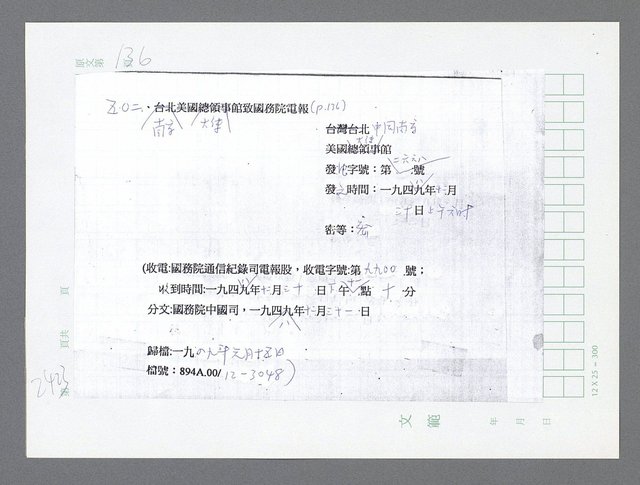 原文第136頁
五〇二、台北美國總領事館致國務院電報(p.136)
南京 大使
台灣台北 中國南京
大使
美國總領事館
發電字號：第二六六八號
發文時間：一九四九年十二月
三十日上午六時
密等：密
(收電:國務院通信紀錄司電報股，收電字號:第九九00號；
收到時間:一九四九年十二月三十日下午 點十分
分文:國務院中國司，一九四九年十二月三十一日
歸檔:一九四九年元月十五日
檔號：894A.00/12-3048)
頁
頁共
2423
第
文範
年 月 日
12 X 25 = 300